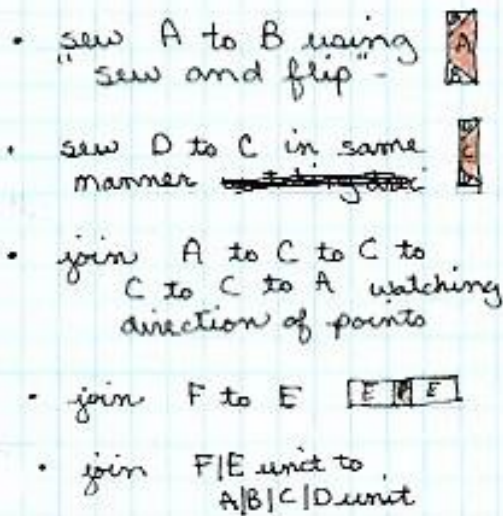 • sew A to B using
"sew and flip" -
A
• sew D to C in same
manner
C
• join A to C to C to
C to C to A watching
direction of points
• join F to E
E F E
• join F/E unit to
A/B/C/D unit